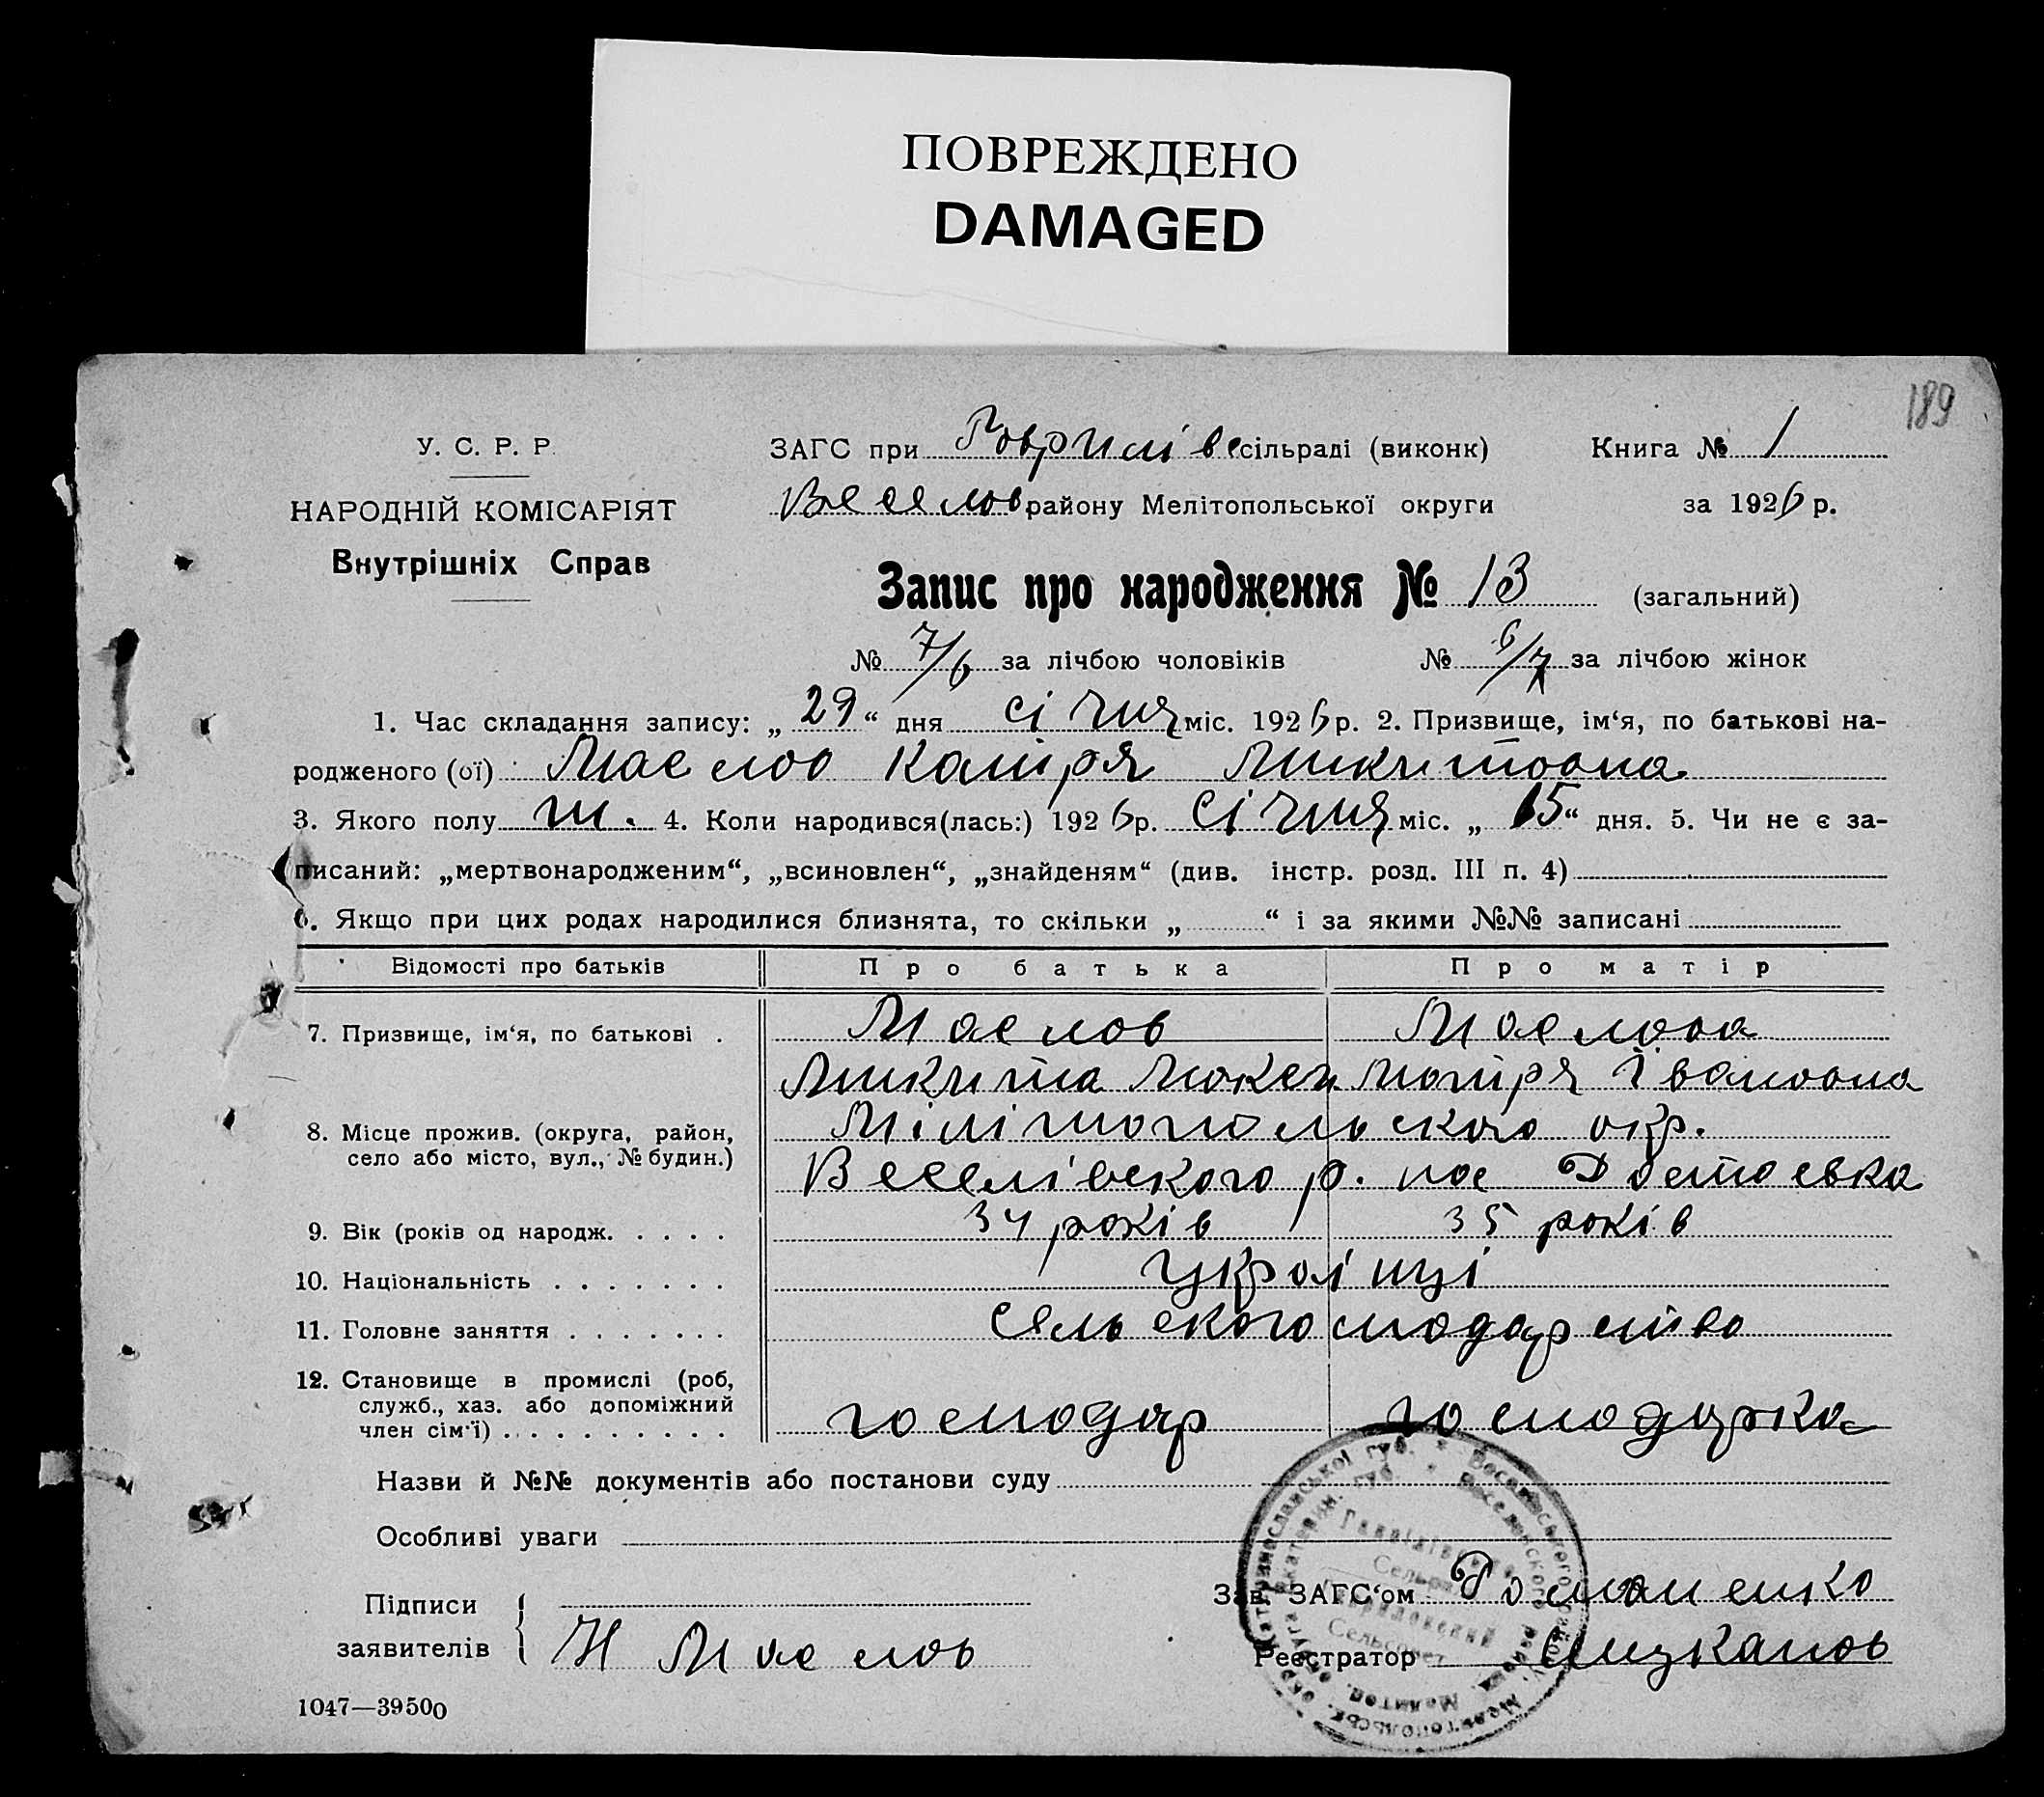 ПОВРЕЖДЕНО
DAMAGED
189
У. С. Р. Р.
НАРОДНІЙ КОМІСАРІЯТ
Внутрішніх Справ
ЗАГС при Гаврилівс сільраді (виконк)
Веселов району Мелітопольської округи
Книга № 1
за 1926 р.
Запис про народження № 13 (загальний)
№ 7/6 за лічбою чоловіків № 6/7 за лічбою жінок
1. Час складання запису: „29“ дня січня міс. 1926 р. 2. Призвище, ім‘я, по батькові на-
родженого (ої) Маслов Микитовна
3. Якого полу ж. 4. Коли народився(лась:) 1926 р. січня міс. „15“ дня. 5. Чи не є за-
писаний: „мертвонародженим“, „всиновлен“, „знайденям“ (див. інстр. розд. III п. 4)
6. Якщо при цих родах народилися близнята, то скільки „ “ і за якими №№ записані
Відомості про батьків Про батька Про матір
7. Призвище, ім‘я, по батькові . Маслов Маслова
Микита Івановна
8. Місце прожив. (округа, район, село або місто, вул., № будин.) Мілітопольского окр.
Веселівского р. пос
9. Вік (років од народж. . . . . 34 років 35 років
10. Національність . . . . . . . Українці
11. Головне заняття . . . . . . . Сельскогосподарство
12. Становище в промислі (роб,
служб., хаз. або допоміжний
член сім‘ї) . . . . . . . . . . господар господарка
Назви й №№ документів або постанови суду
Особливі уваги
Підписи
заявителів Н Маслов
Зав. ЗАГС‘ом Романенко
Реєстратор
1047—39500